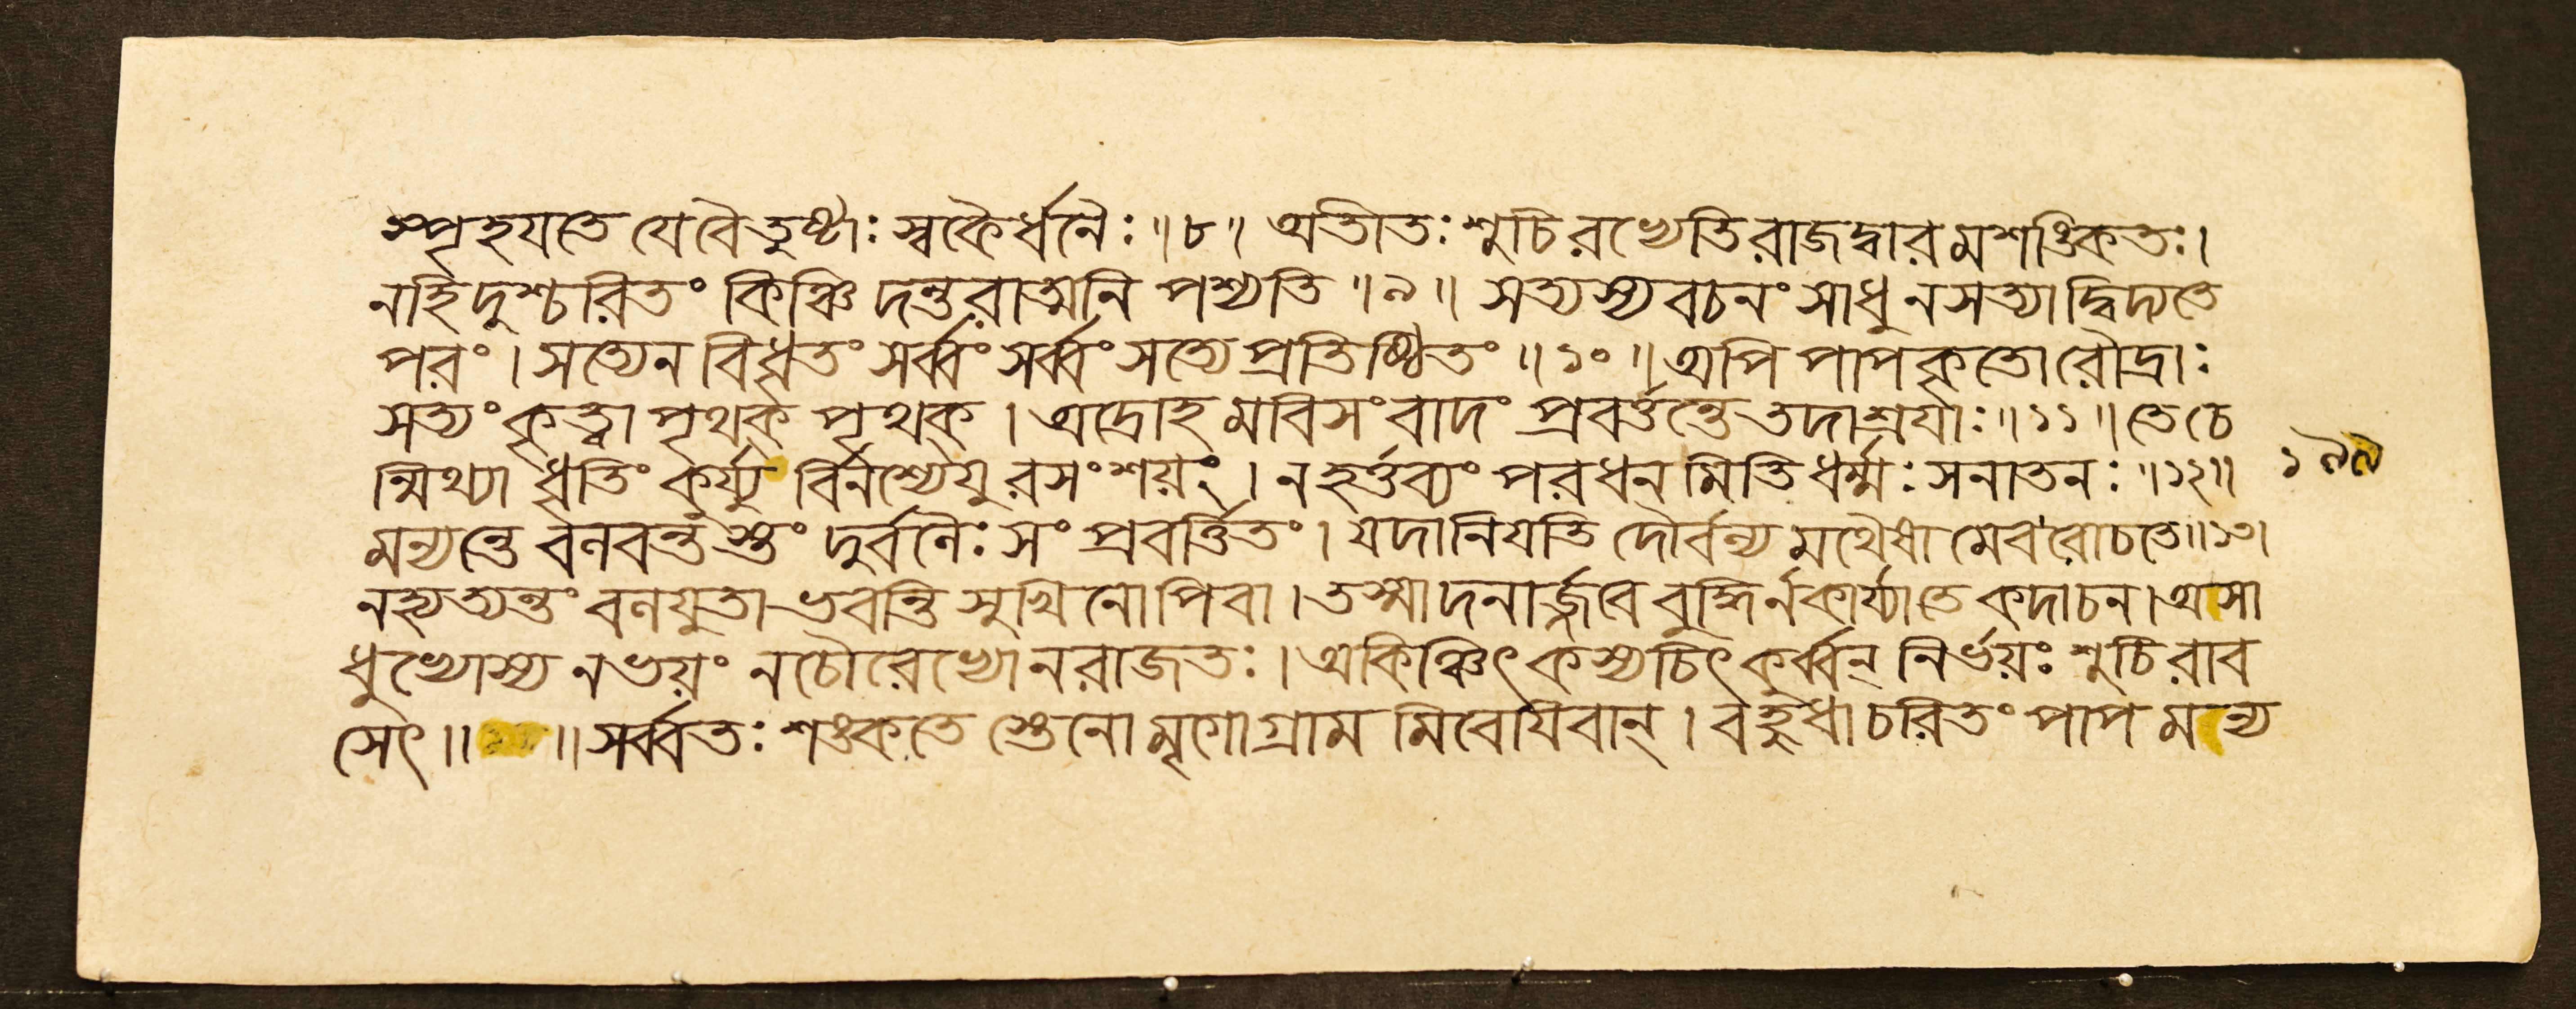 স্পৃহযতে যে বৈ তুষ্টাঃ স্বকৈর্ধনৈঃ ॥৮॥ অভীতঃ শুচিরভ্যেতি রাজদ্বারমশঙ্কিতঃ ।
নহি দুশ্চরিতং কিঞ্চিদন্তরাত্মনি পশ্যতি ॥৯॥ সত্যস্য বচনং সাধু ন সত্যাদ্বিদ্যতে
পরং । সত্যেন বিধৃতং সর্ব্বং সর্ব্বং সত্যে প্রতিষ্ঠিতং ॥১০॥ অপি পাপকৃতো রৌদ্রাঃ
সত্যং কৃত্বা পৃথক্ পৃথক্ । অদ্রোহমবিসংবাদং প্রবর্ত্তন্তে তদাশ্রযাঃ ॥১১॥ তে চে
ন্মিথ্যা ধৃতিং কুর্য্যু র্বিনশ্যেযুরসংশয়ং । ন হর্ত্তব্যং পরধনমিতি ধর্ম্মঃ সনাতনঃ ॥১২॥
১৯৯
মন্যন্তে বলবন্তস্তং দুর্বলৈঃ সংপ্রবর্ত্তিতং । যদা নিযতি দৌর্বল্যমথৈষামেব রোচতে ॥১৩।
নহ্যত্যন্তং বলযুতা ভবন্তি সুখিনোপি বা । তস্মাদনার্জ্জবে বুদ্ধির্নকার্য্যাতে কদাচন । অসা
ধুভ্যোস্য ন ভয়ং ন চৌরেভ্যো ন রাজতঃ । অকিঞ্চিৎ কস্যচিৎ কুর্ব্বন্ নির্ভয়ঃ শুচিরাব
সেৎ ॥ ॥ সর্ব্বতঃ শঙ্কতে স্তেনো মৃগো গ্রামমিবেযিবান্ । বহুধাচরিতং পাপমন্য